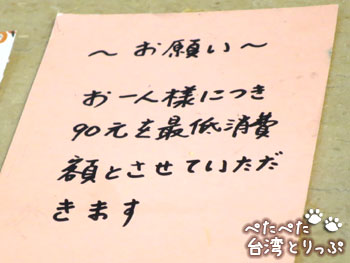 ～お願い～
お一人様につき
90元を最低消費
額とさせていただ
きます
ぺたぺた
台湾とりっぷ